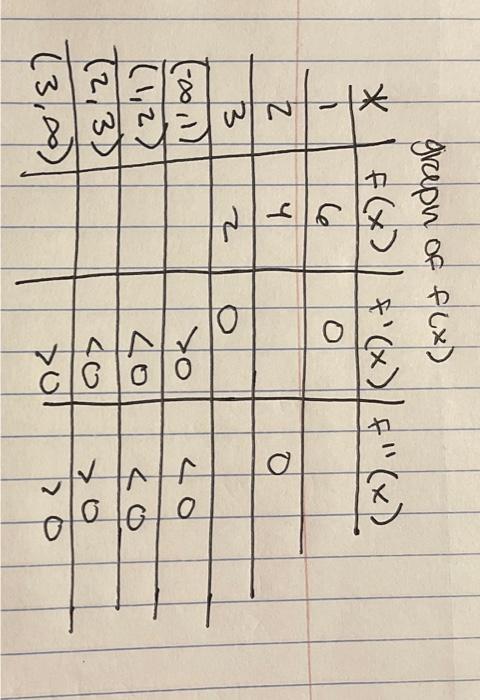 graph of f(x)
x f(x) f'(x) f''(x)
1 6 0
2 4 0
3 2 0
(-∞,1) >0 <0
(1,2) <0 <0
(2,3) <0 >0
(3,∞) >0 >0